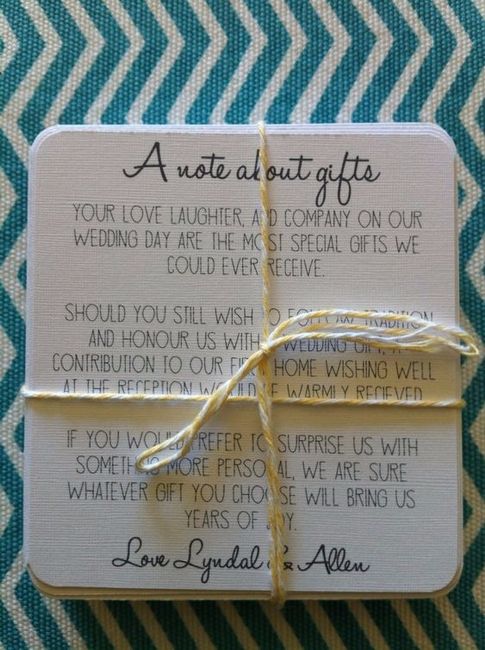 A note about gifts
YOUR LOVE LAUGHTER, AND COMPANY ON OUR
WEDDING DAY ARE THE MOST SPECIAL GIFTS WE
COULD EVER RECEIVE.
SHOULD YOU STILL WISH TO FOLLOW TRADITION
AND HONOUR US WITH A WEDDING GIFT,
CONTRIBUTION TO OUR FIRST HOME WISHING WELL
AT THE RECEPTION WOULD BE WARMLY RECIEVED.
IF YOU WOULD PREFER TO SURPRISE US WITH
SOMETHING MORE PERSONAL, WE ARE SURE
WHATEVER GIFT YOU CHOOSE WILL BRING US
YEARS OF JOY.
Love Lyndal & Allen